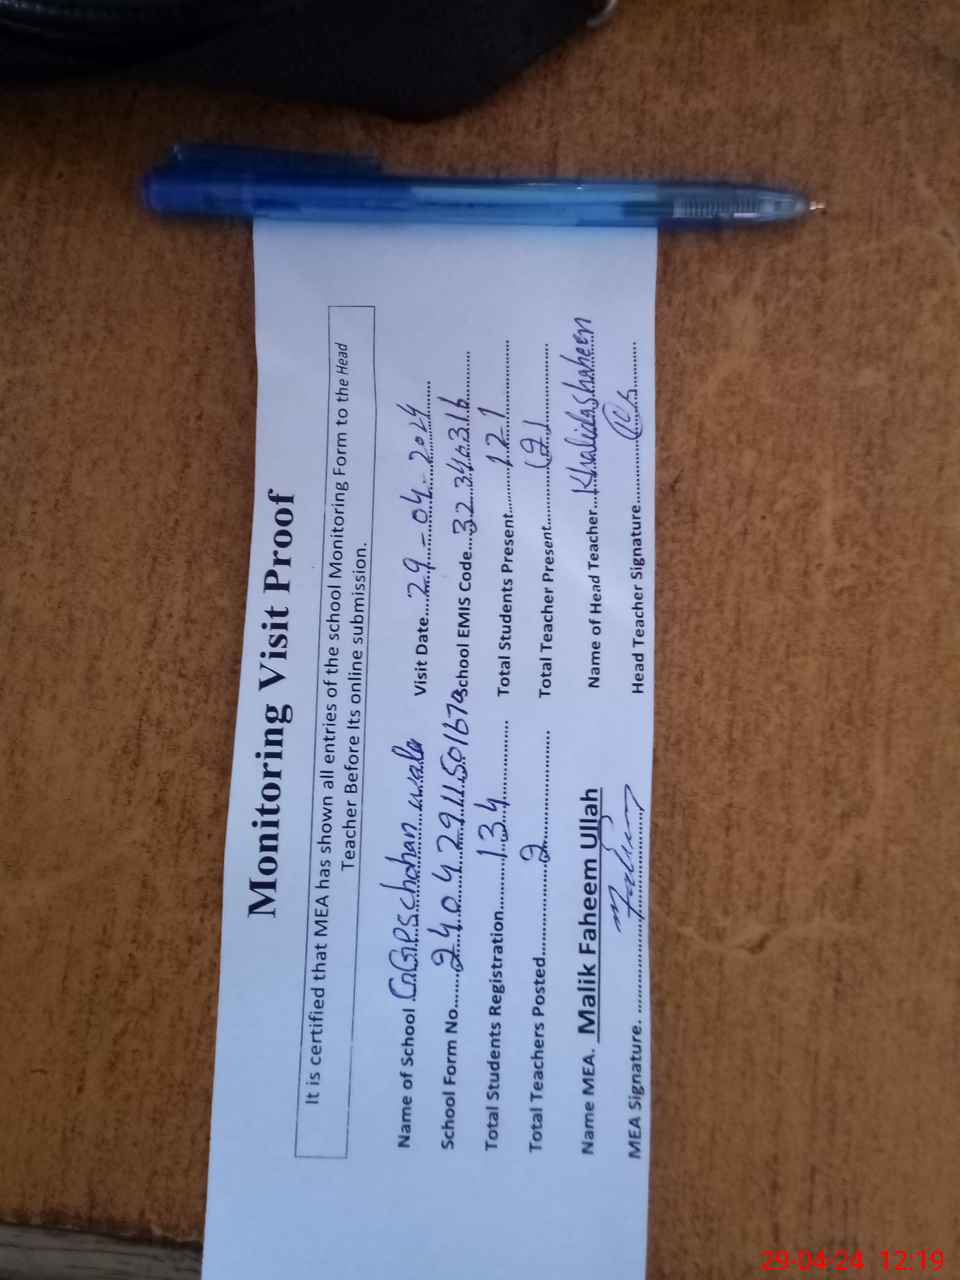 Monitoring Visit Proof
It is certified that MEA has shown all entries of the school Monitoring Form to the Head
Teacher Before Its online submission.
Name of School GGPS chohan wala Visit Date....29-04-2024
School Form No......24042911501679 School EMIS Code....32340316
Total Students Registration..........134 Total Students Present..........121
Total Teachers Posted..........2 Total Teacher Present..........
Name MEA. Malik Faheem Ullah Name of Head Teacher...Khalida shaheen
MEA Signature. Head Teacher Signature
29-04-24 12:19